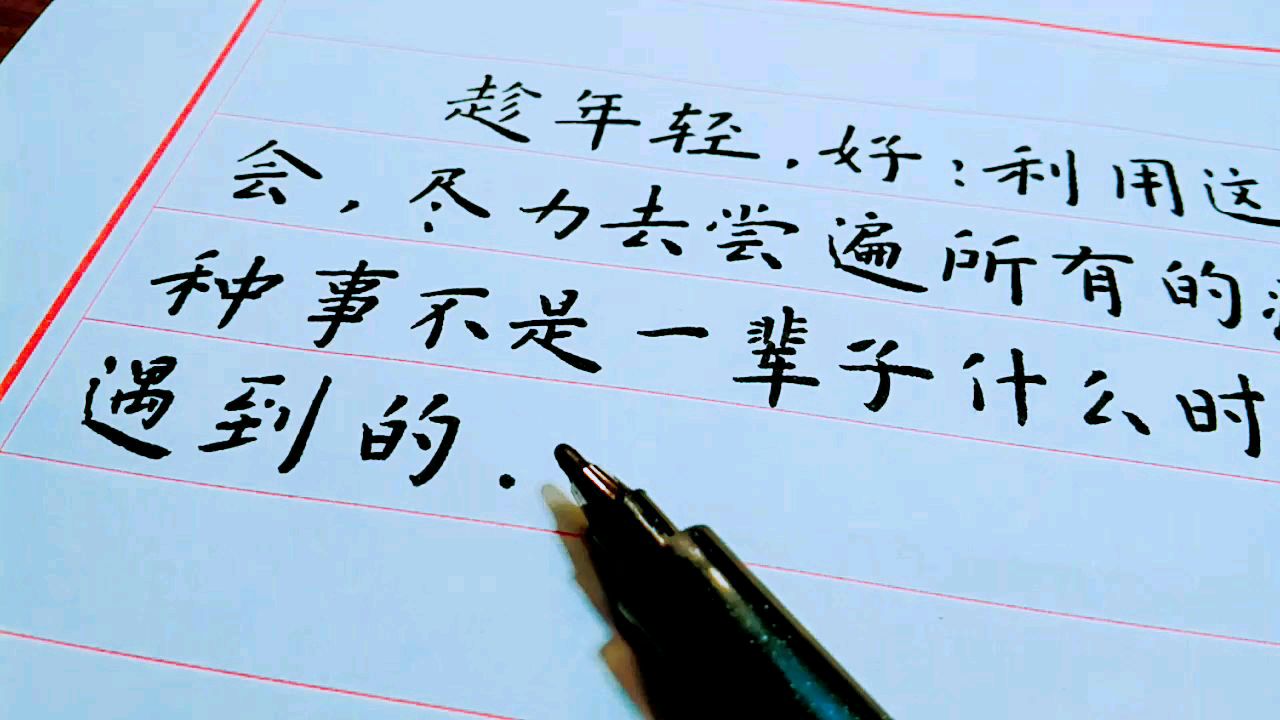 趁年轻.好:利用这
会,尽力去尝遍所有的
种事不是一辈子什么时
遇到的.